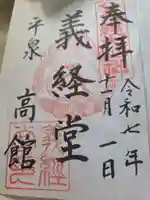 奉拝
令和七年
十一月一日
義経堂
平泉
高館